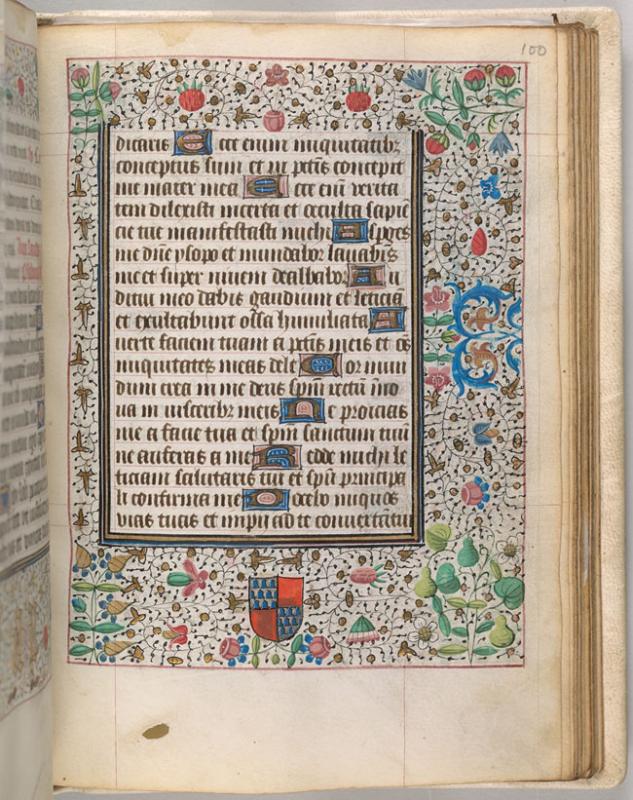 100
dicaris Ecce enim iniquitatibz
conceptus sum et in pctis concepit
me mater mea Ecce eni verita
tem dilexisti incerta et occulta sapie
cie tue manifestasti michi Aspges
me dne ysopo et mundabor lavabis
me et super nivem dealbabor Au
ditui meo dabis gaudium et leticia
et exultabunt ossa humiliata A
verte faciem tuam a pctis meis et oes
iniquitates meas dele Cor mun
dum crea in me deus et spm rectu ino
va in visceribz meis Ne proicias
me a facie tua et spm sanctum tuu
ne auferas a me Redde michi le
ticiam salutaris tui et spu principa
li confirma me Docebo iniquos
vias tuas et impii ad te convertatur